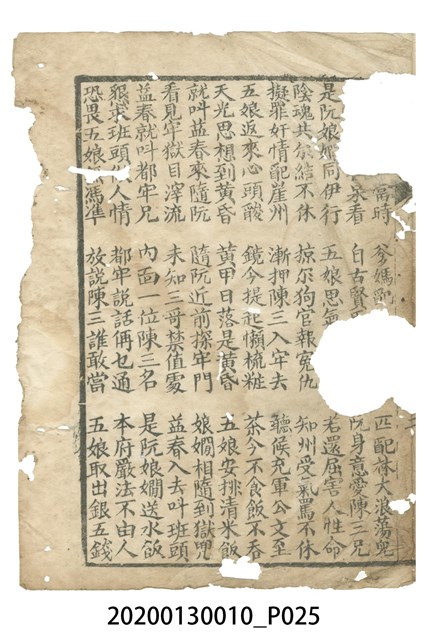 高時 爹媽配 匹配林大浪蕩兜
泉看 自古賢 阮身意愛陳三兄
是阮娘嫺同伊行 五娘思氣 若還屈害人性命
陰魂共尔結不休 掠尔狗官報冤仇 知州受氣罵不休
擬罪奸情配崖州 漸押陳三入牢去 聽候充軍公文至
五娘返來心頭酸 鏡今提起懶梳粧 茶今不食飯不吞
天光思想到黃昏 黃甲日落是黃昏 五娘安排清米飯
就叫益春來隨阮 隨阮近前探牢門 娘嫺相隨到獄兜
看見牢獄目滓流 未知三哥禁值處 益春入去叫班頭
益春就叫都牢兄 內面一位陳三名 是阮娘嫺送水飯
懇求班頭人情 都牢說話倆乜通 本府嚴法不由人
恐畏五娘憑準 放說陳三誰敢當 五娘取出銀五錢
20200130010_P025